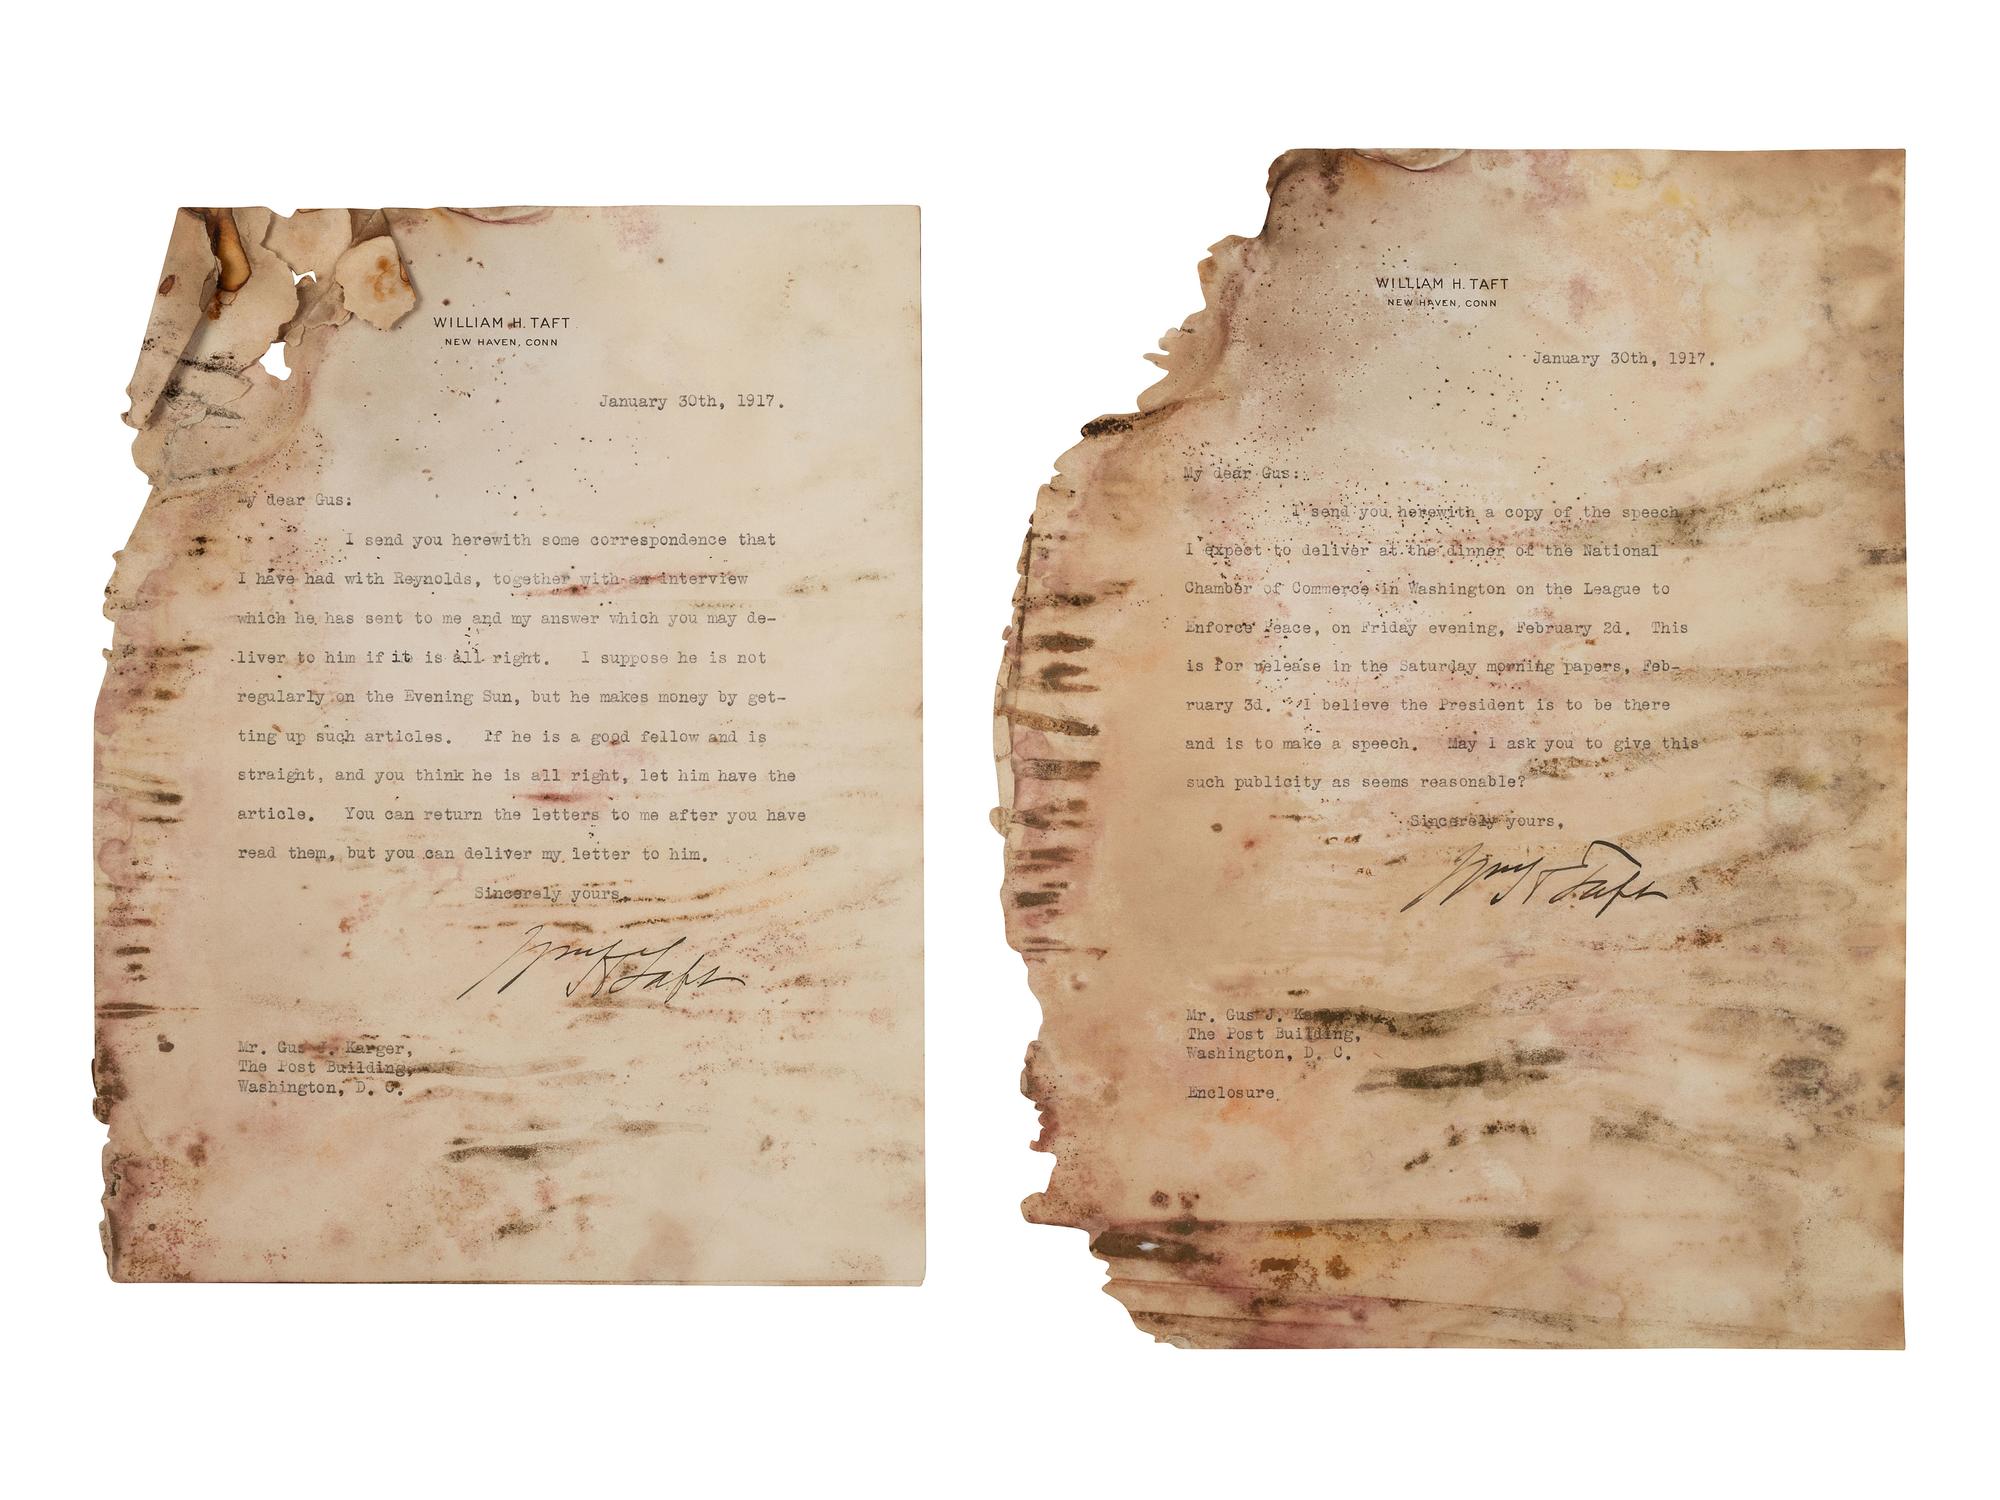 WILLIAM H. TAFT
NEW HAVEN, CONN
January 30th, 1917.
My dear Gus:
I send you herewith some correspondence that
I have had with Reynolds, together with an interview
which he has sent to me and my answer which you may de-
liver to him if it is all right. I suppose he is not
regularly on the Evening Sun, but he makes money by get-
ting up such articles. If he is a good fellow and is
straight, and you think he is all right, let him have the
article. You can return the letters to me after you have
read them, but you can deliver my letter to him.
Sincerely yours,
Wm H Taft
Mr. Gus J. Karger,
The Post Building,
Washington, D. C.
WILLIAM H. TAFT
NEW HAVEN, CONN
January 30th, 1917.
My dear Gus:
I send you herewith a copy of the speech
I expect to deliver at the dinner of the National
Chamber of Commerce in Washington on the League to
Enforce Peace, on Friday evening, February 2d. This
is for release in the Saturday morning papers, Feb-
ruary 3d. I believe the President is to be there
and is to make a speech. May I ask you to give this
such publicity as seems reasonable?
Sincerely yours,
Wm H Taft
Mr. Gus J. Karger,
The Post Building,
Washington, D. C.
Enclosure